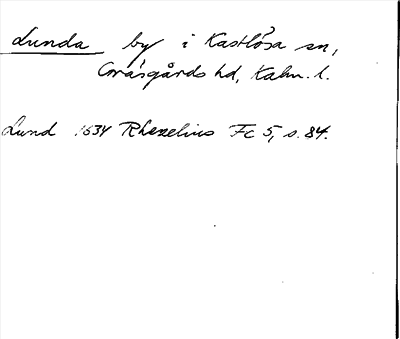 Lunda by i Kastlösa sn,
Gräsgårds hd, Kalm. l.
Lund 1634 Rhezelius Fc 5, s. 84.